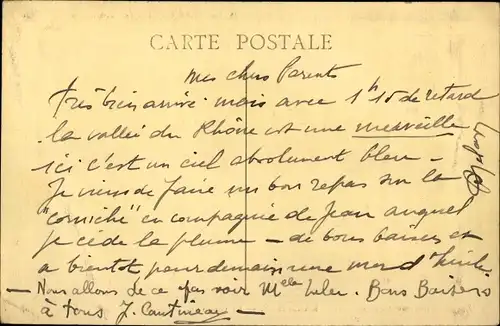 CARTE POSTALE
Mes chers Parents
Très bien arrivé mais avec 1h15 de retard
la vallée du Rhône est une merveille
ici c'est un ciel absolument bleu –
Je viens de faire un bon repas sur la
"corniche" en compagnie de Jean auquel
je cède la plume – de bons baisers et
a bientot pour demain une
– Nous allons de ce pas voir Bons Baisers
à tous J.